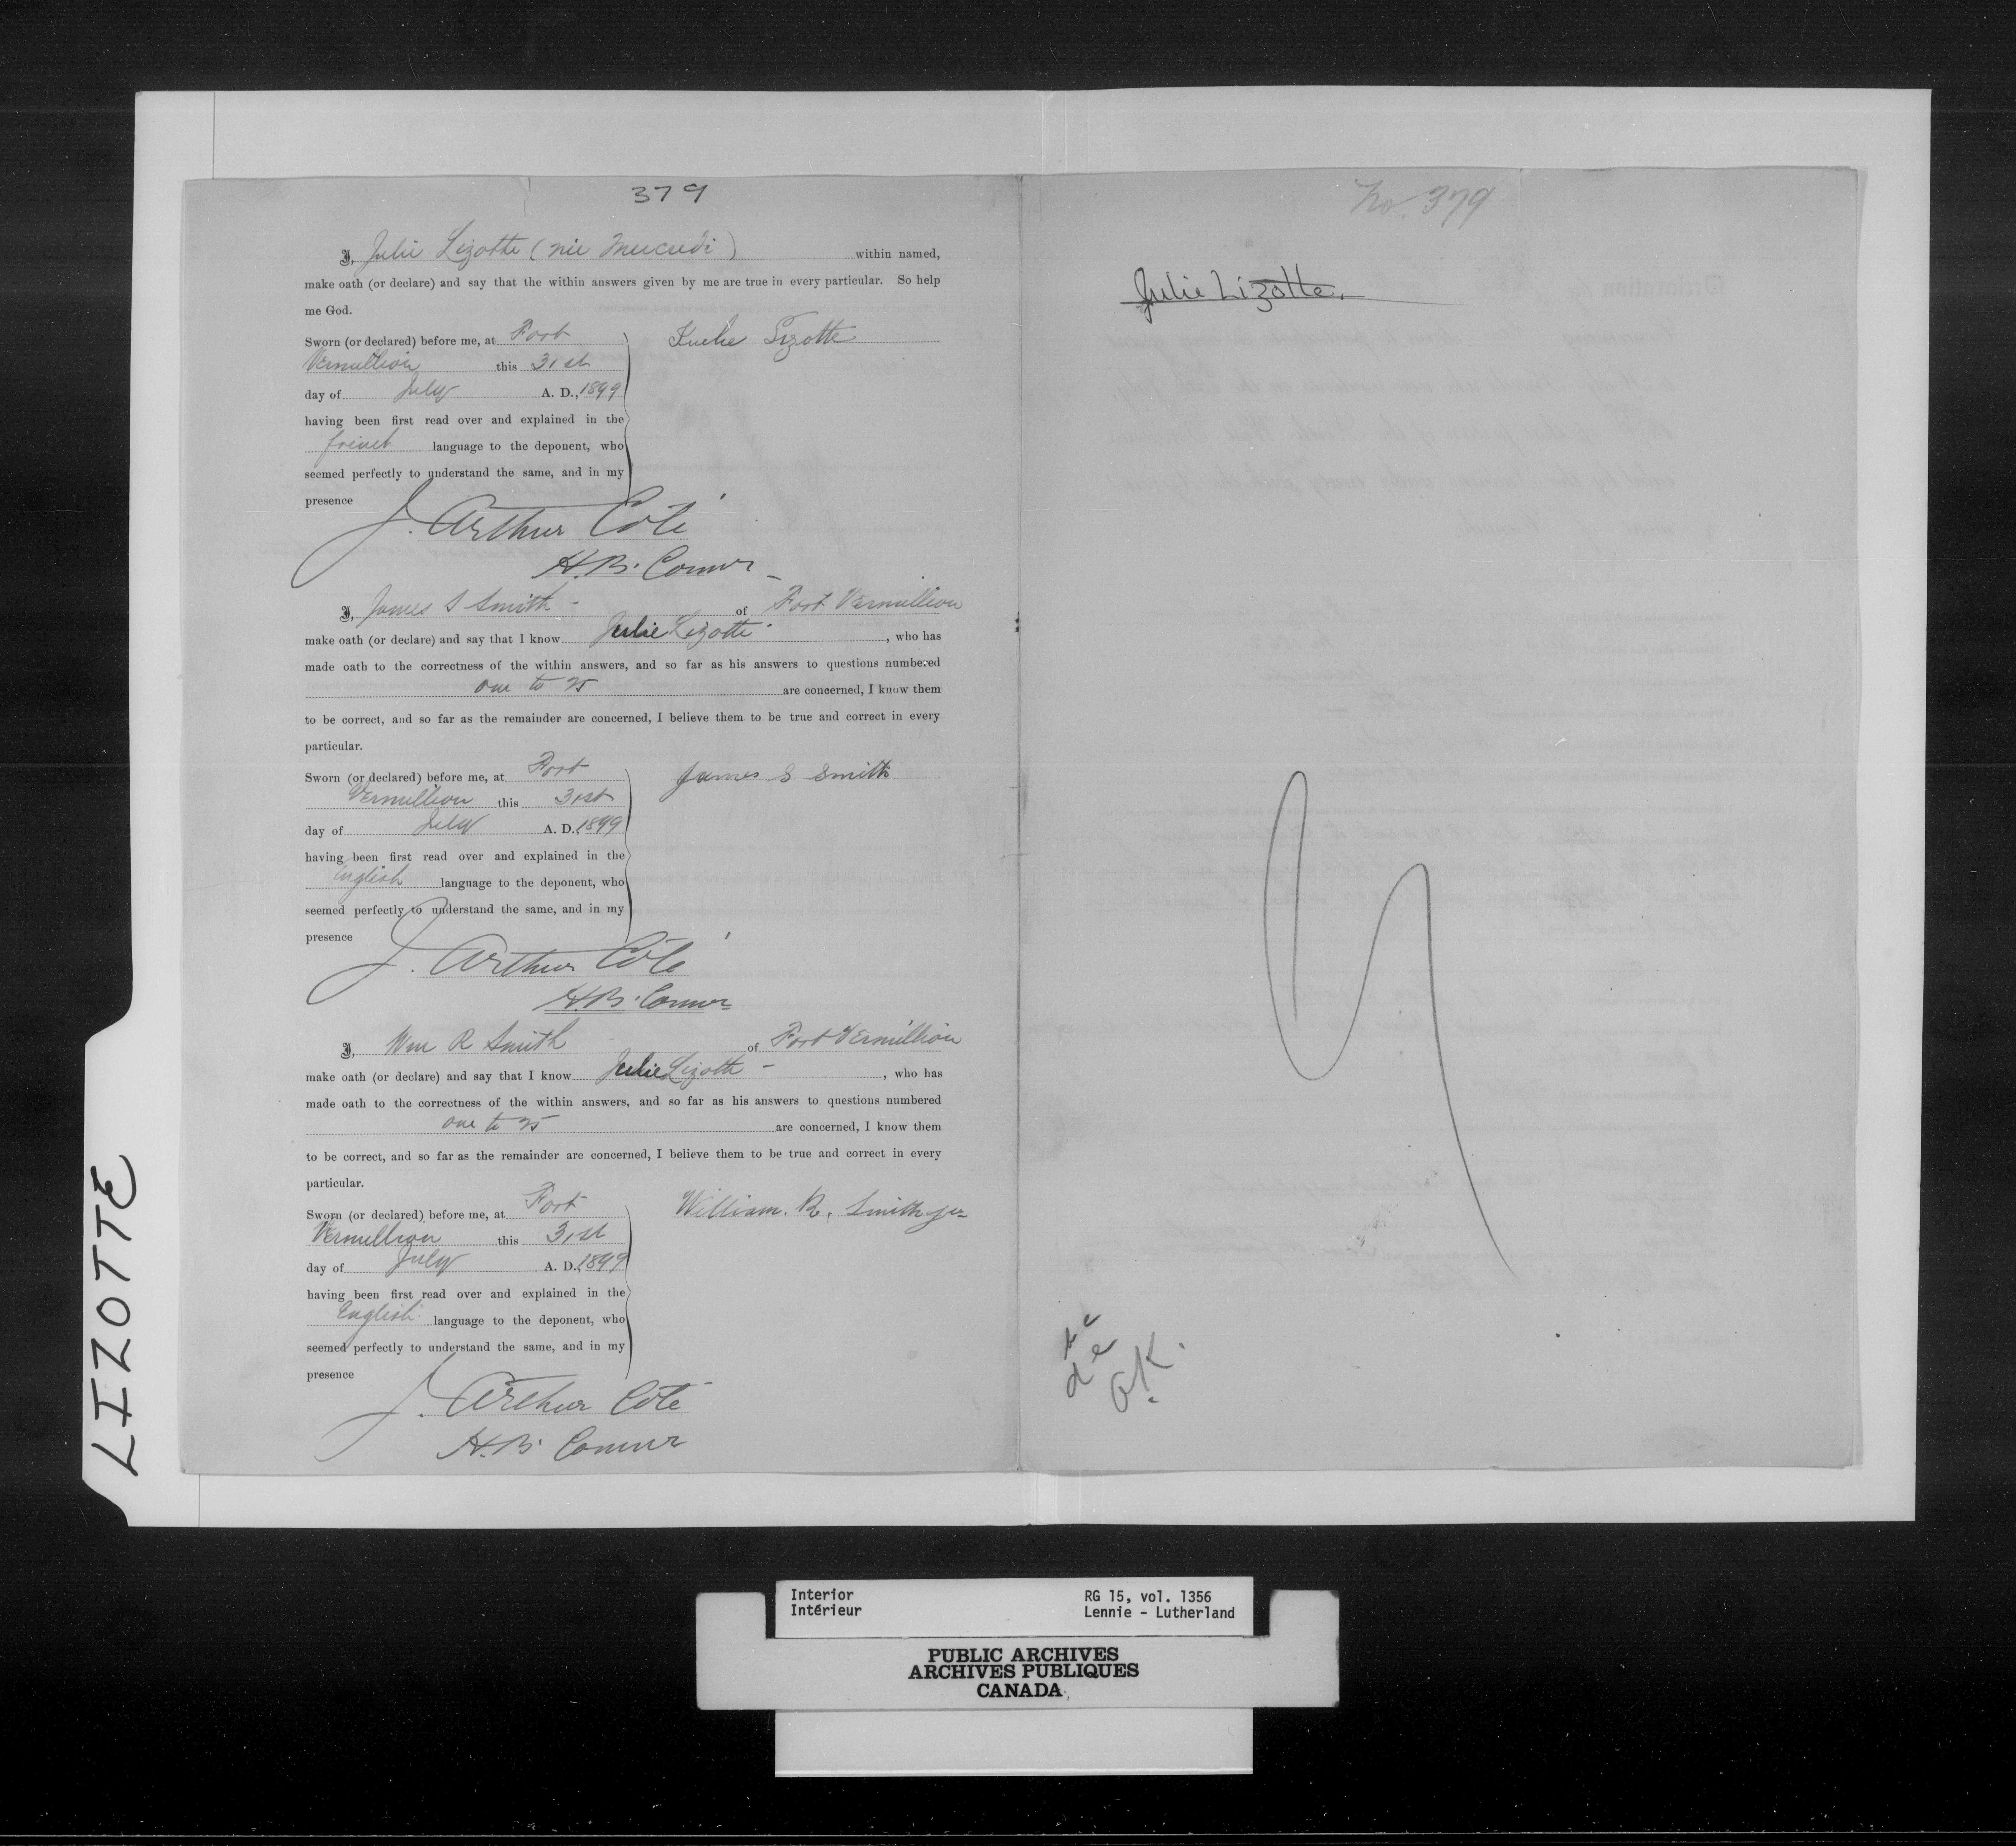 379
I, Julie Lizotte (née Mercredi) within named,
make oath (or declare) and say that the within answers given by me are true in every particular. So help
me God.
Sworn (or declared) before me, at Fort
Vermillion this 31st
day of July A. D., 1899
having been first read over and explained in the
french language to the deponent, who
seemed perfectly to understand the same, and in my
presence
Lizotte
J. Arthur Coté
H.B. Connor
I, James S Smith - of Fort Vermillion
make oath (or declare) and say that I know Julie Lizotte, who has
made oath to the correctness of the within answers, and so far as his answers to questions numbered
one to 25 are concerned, I know them
to be correct, and so far as the remainder are concerned, I believe them to be true and correct in every
particular.
Sworn (or declared) before me, at Fort
Vermillion this 31st
day of July A. D. 1899
having been first read over and explained in the
English language to the deponent, who
seemed perfectly to understand the same, and in my
presence
James S Smith
J. Arthur Coté
H.B. Connor
I, Wm R Smith of Fort Vermillion
make oath (or declare) and say that I know Julie Lizotte -, who has
made oath to the correctness of the within answers, and so far as his answers to questions numbered
one to 25 are concerned, I know them
to be correct, and so far as the remainder are concerned, I believe them to be true and correct in every
particular.
Sworn (or declared) before me, at Fort
Vermillion this 31st
day of July A. D. 1899
having been first read over and explained in the
English language to the deponent, who
seemed perfectly to understand the same, and in my
presence
William. R. Smith jr
J. Arthur Coté
H.B. Connor
No. 379
Julie Lizotte.
O.K.
LIZOTTE
Interior
Intérieur
RG 15, vol. 1356
Lennie - Lutherland
PUBLIC ARCHIVES
ARCHIVES PUBLIQUES
CANADA